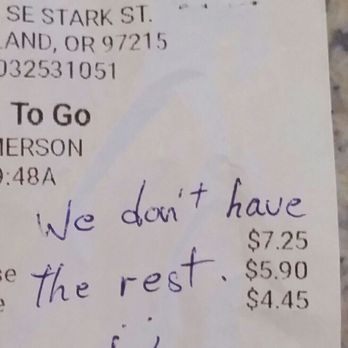 SE STARK ST.
LAND, OR 97215
032531051
To Go
MERSON
9:48A
We don't have
$7.25
se the rest. $5.90
e $4.45